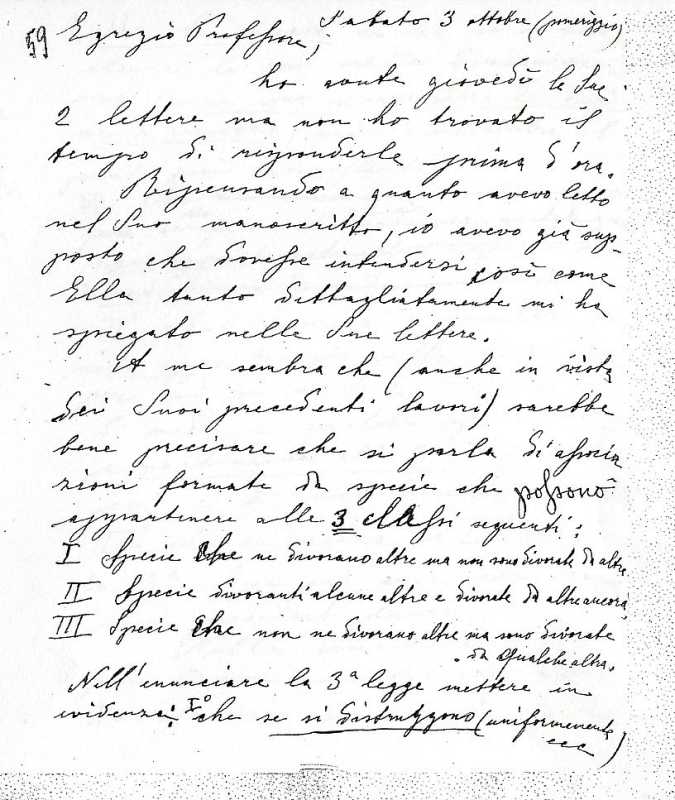 Sabato 3 ottobre (pomeriggio)
59 Egregio Professore,
ho avute giovedì le Sue
2 lettere ma non ho trovato il
tempo di risponderle prima d'ora.
Ripensando a quanto avevo letto
nel Suo manoscritto, io avevo già sup-
posto che dovesse intendersi così come
Ella tanto dettagliatamente mi ha
spiegato nelle Sue lettere.
A me sembra che (anche in vista
dei Suoi precedenti lavori) sarebbe
bene precisare che si parla di associa
zioni formate da specie che possono
appartenere alle 3 classi seguenti:
I Specie che ne divorano altre ma non sono divorate da altre
II Specie divoranti alcune altre e divorate da altre ancora,
III Specie che non ne divorano altre ma sono divorate
da qualche altra.
Nell'enunciare la 3ª legge mettere in
evidenza: I° che se si distruggono (uniformemente
ecc)